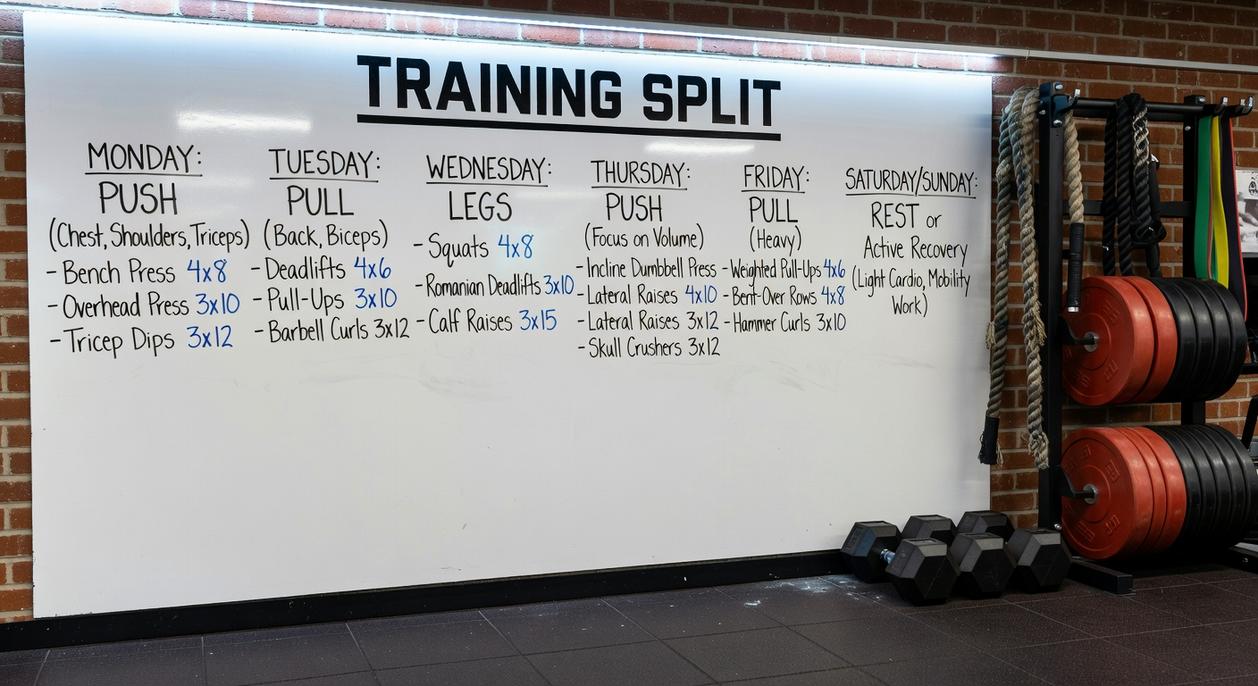 TRAINING SPLIT
MONDAY:
PUSH
(Chest, Shoulders, Triceps)
- Bench Press 4x8
- Overhead Press 3x10
- Tricep Dips 3x12
TUESDAY:
PULL
(Back, Biceps)
- Deadlifts 4x6
- Pull-Ups 3x10
- Barbell Curls 3x12
WEDNESDAY:
LEGS
- Squats 4x8
- Romanian Deadlifts 3x10
- Calf Raises 3x15
THURSDAY:
PUSH
(Focus on Volume)
- Incline Dumbbell Press
- Lateral Raises 4x10
- Lateral Raises 3x12
- Skull Crushers 3x12
FRIDAY:
PULL
(Heavy)
- Weighted Pull-Ups 4x6
- Bent-Over Rows 4x8
- Hammer Curls 3x10
SATURDAY/SUNDAY:
REST or
Active Recovery
(Light Cardio, Mobility
Work)